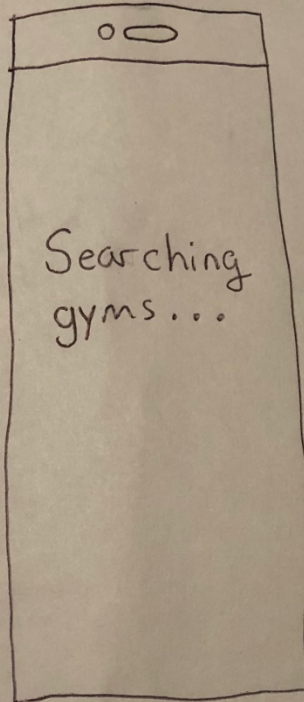 Searching
gyms...